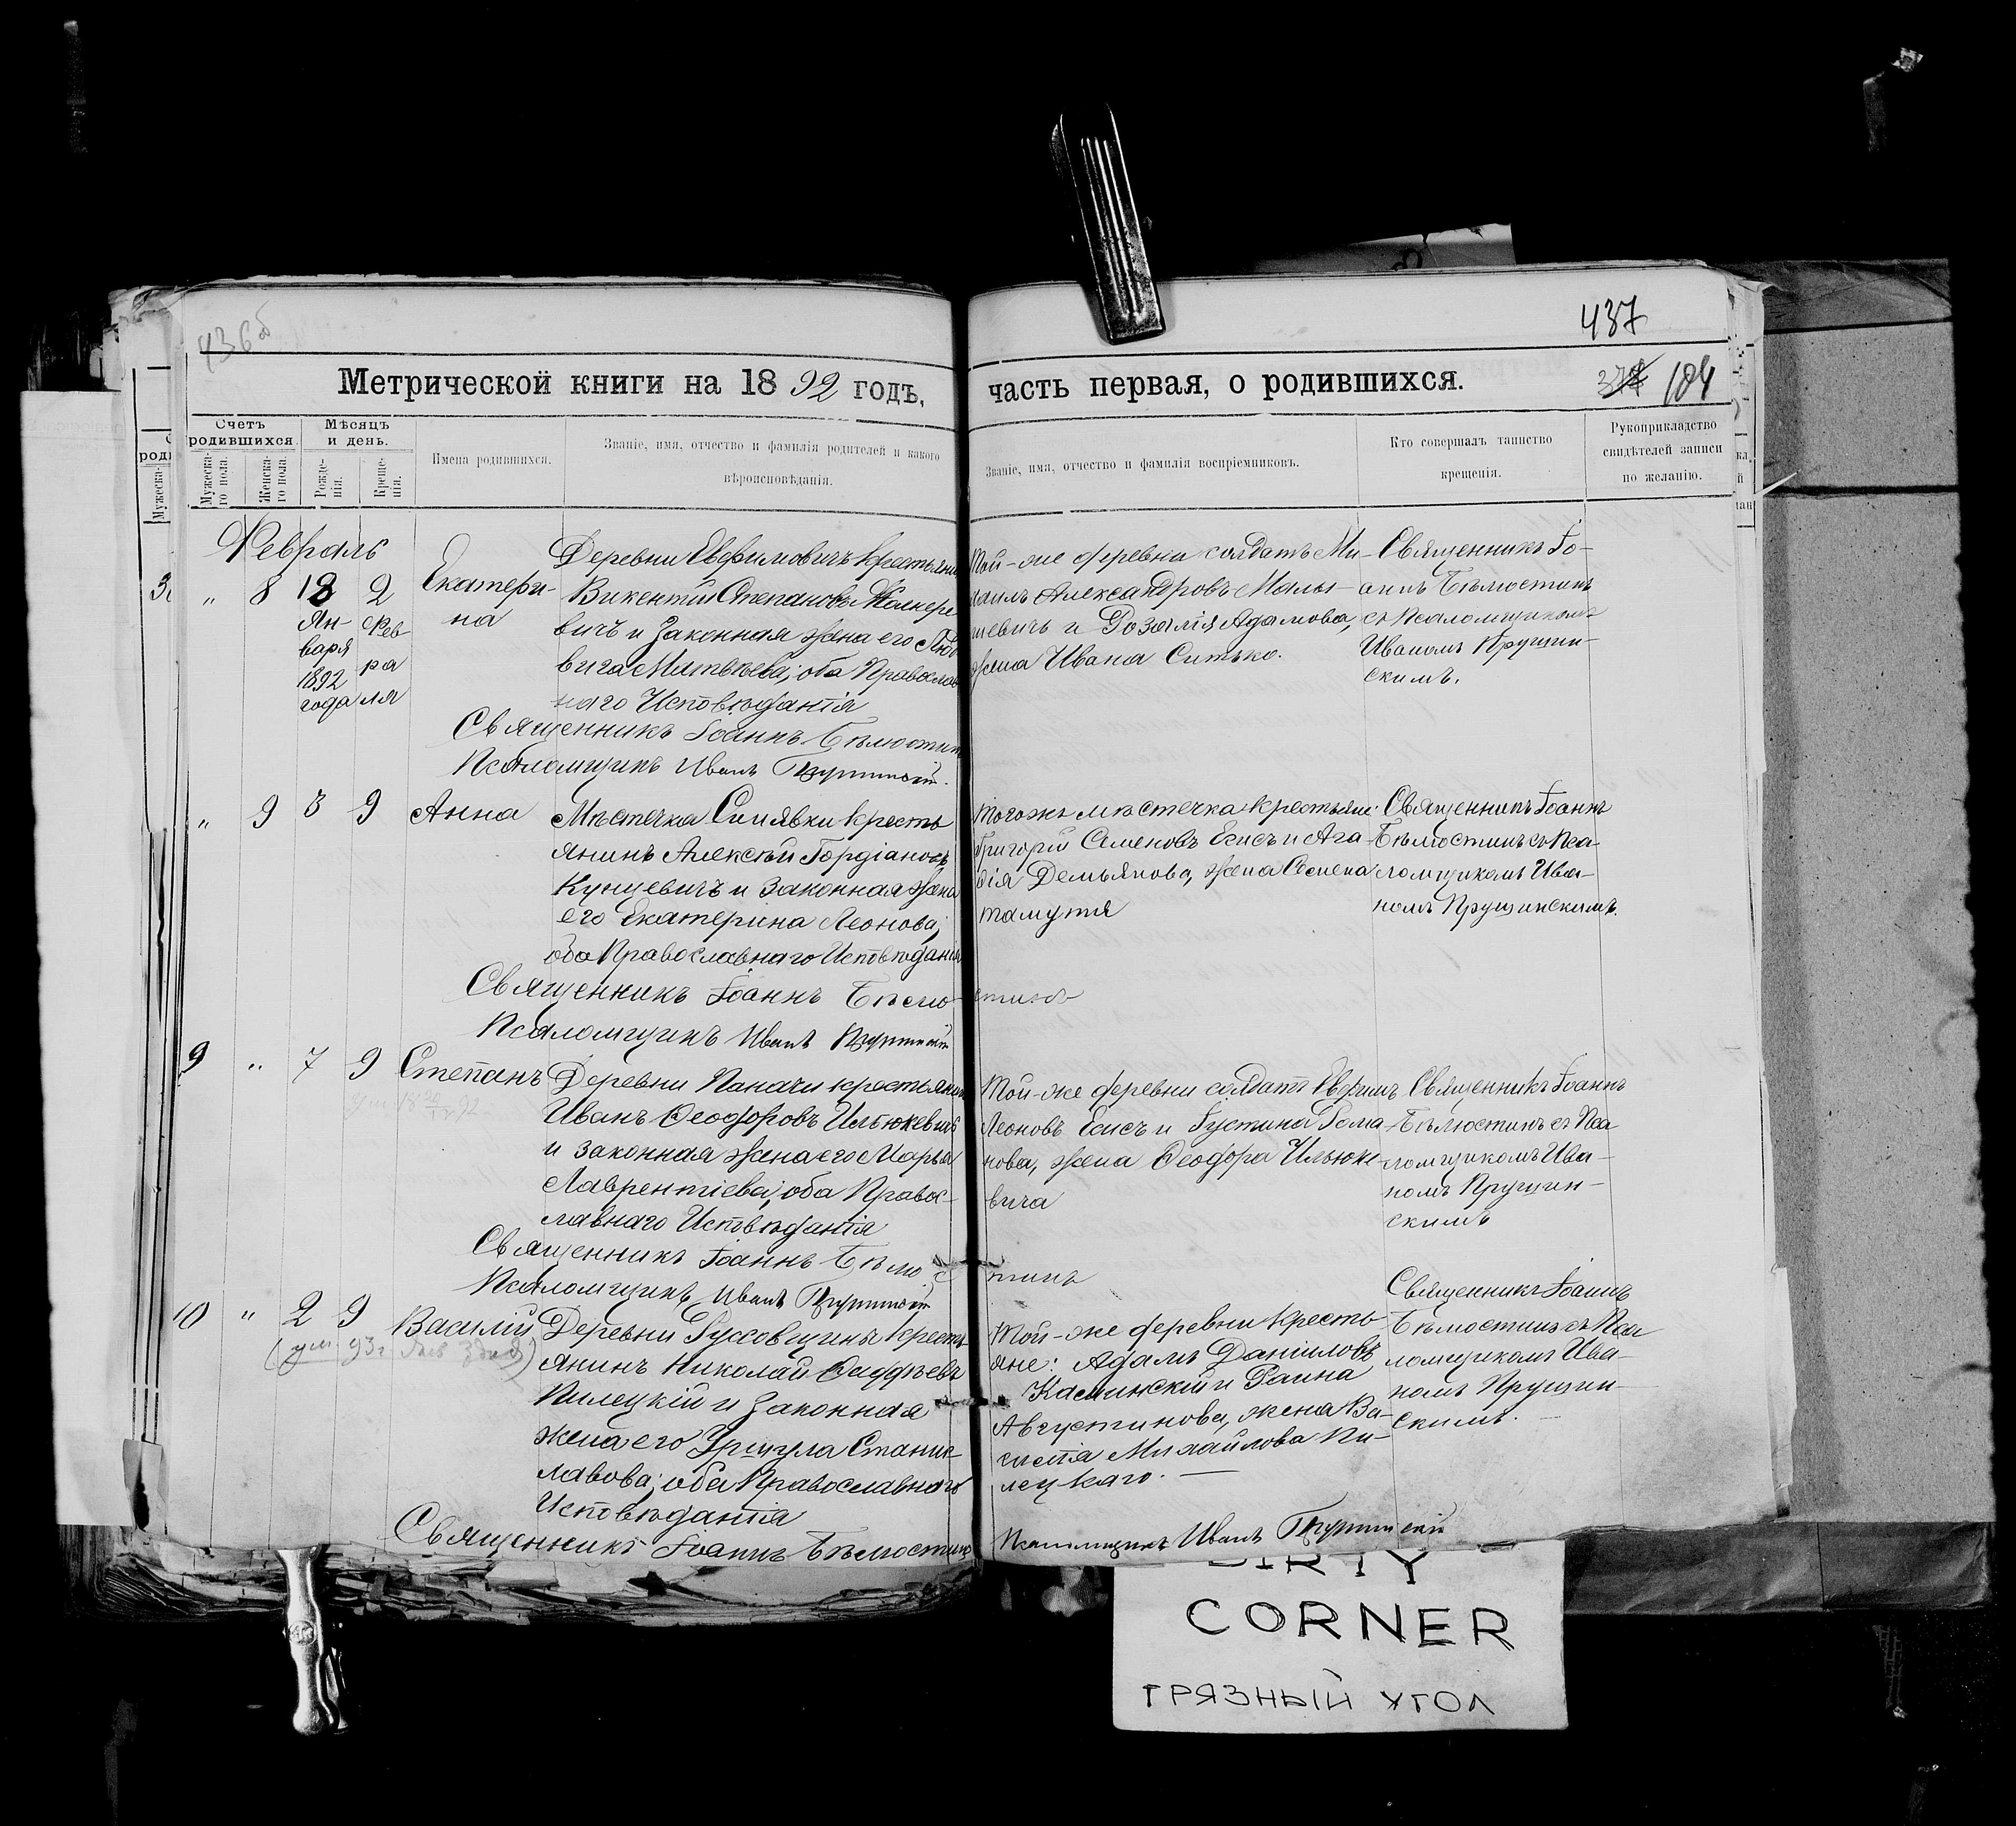 436б
437
Метрической книги на 1892 годъ,
часть первая, о родившихся.
104
Счетъ родившихся.
Мѣсяцъ и день.
Мужеска-го пола.
Женска-го пола.
Рожде-нія.
Креще-нія.
Имена родившихся.
Званіе, имя, отчество и фамилія родителей и какого
вѣроисповѣданія.
Званіе, имя, отчество и фамилія воспріемниковъ.
Кто совершалъ таинство
крещенія.
Рукоприкладство
свидѣтелей записи
по желанію.
Февраль
„ 8 18 2
Ян-
варя
1892
года
Фев-
ра
ля
Екатери-
на
Деревни Евфимовичъ крестьянинъ
Викентій Степановъ
вичъ и законная жена его Людо
вига Матвѣева; оба Православ
наго Исповѣданія
Священникъ Іоаннъ Бѣлюстинъ
Псаломщикъ Иванъ Прушинскій.
Той-же деревни солдатъ Ми-
хаилъ Александровъ Малы-
шевичъ и Розалія Адамова,
жена Ивана Ситько.
Священникъ Іо-
аннъ Бѣлюстинъ
съ Псаломщикомъ
Иваномъ Прушин-
скимъ.
„ 9 3 9
Анна
Мѣстечка Синявки кресть
янинъ Алексѣй Гордіановъ
Кунцевичъ и законная жена
его Екатерина Леонова;
оба Православнаго Исповѣданія
Священникъ Іоаннъ Бѣлю-
стинъ
Псаломщикъ Иванъ Прушинскій
тогожъ мѣстечка крестьяне:
Григорій Семеновъ Есисъ и Ага-
фія Демьянова, жена Семена
Священникъ Іоаннъ
Бѣлюстинъ съ Пса-
ломщикомъ Ива-
номъ Прушинскимъ.
9 „ 7 9
Степанъ
Деревни Паначи крестьянинъ
Иванъ Ѳеодоровъ Ильюкевичъ
и законная жена его Марья
Лаврентіева; оба Правос-
лавнаго Исповѣданія
Священникъ Іоаннъ Бѣлюс
тинъ
Псаломщикъ Иванъ Прушинскій
Той-же деревни солдатъ Евфимъ
Леоновъ Есисъ и Іустина Рома-
нова, жена Ѳеодора Ильюке-
вича
Священникъ Іоаннъ
Бѣлюстинъ съ Пса
ломщикомъ Ива-
номъ Прушин-
скимъ
10 „ 2 9
Василій
Деревни Гуссовщины кресть-
янинъ Николай Ѳаддѣевъ
Пилецкій и законная
жена его Уршула Станис-
лавова; оба Православнаго
Исповѣданія
Священникъ Іоаннъ Бѣлюстинъ
Той-же деревни кресть-
яне: Адамъ Даніиловъ
Каминскій и Раина
Августинова, жена Ва-
силія Михайлова Пи-
лецкаго.
Псаломщикъ Иванъ Прушинскій
Священникъ Іоаннъ
Бѣлюстинъ съ Пса
ломщикомъ Ива-
номъ Прушин-
скимъ.
DIRTY
CORNER
ГРЯЗНЫЙ УГОЛ